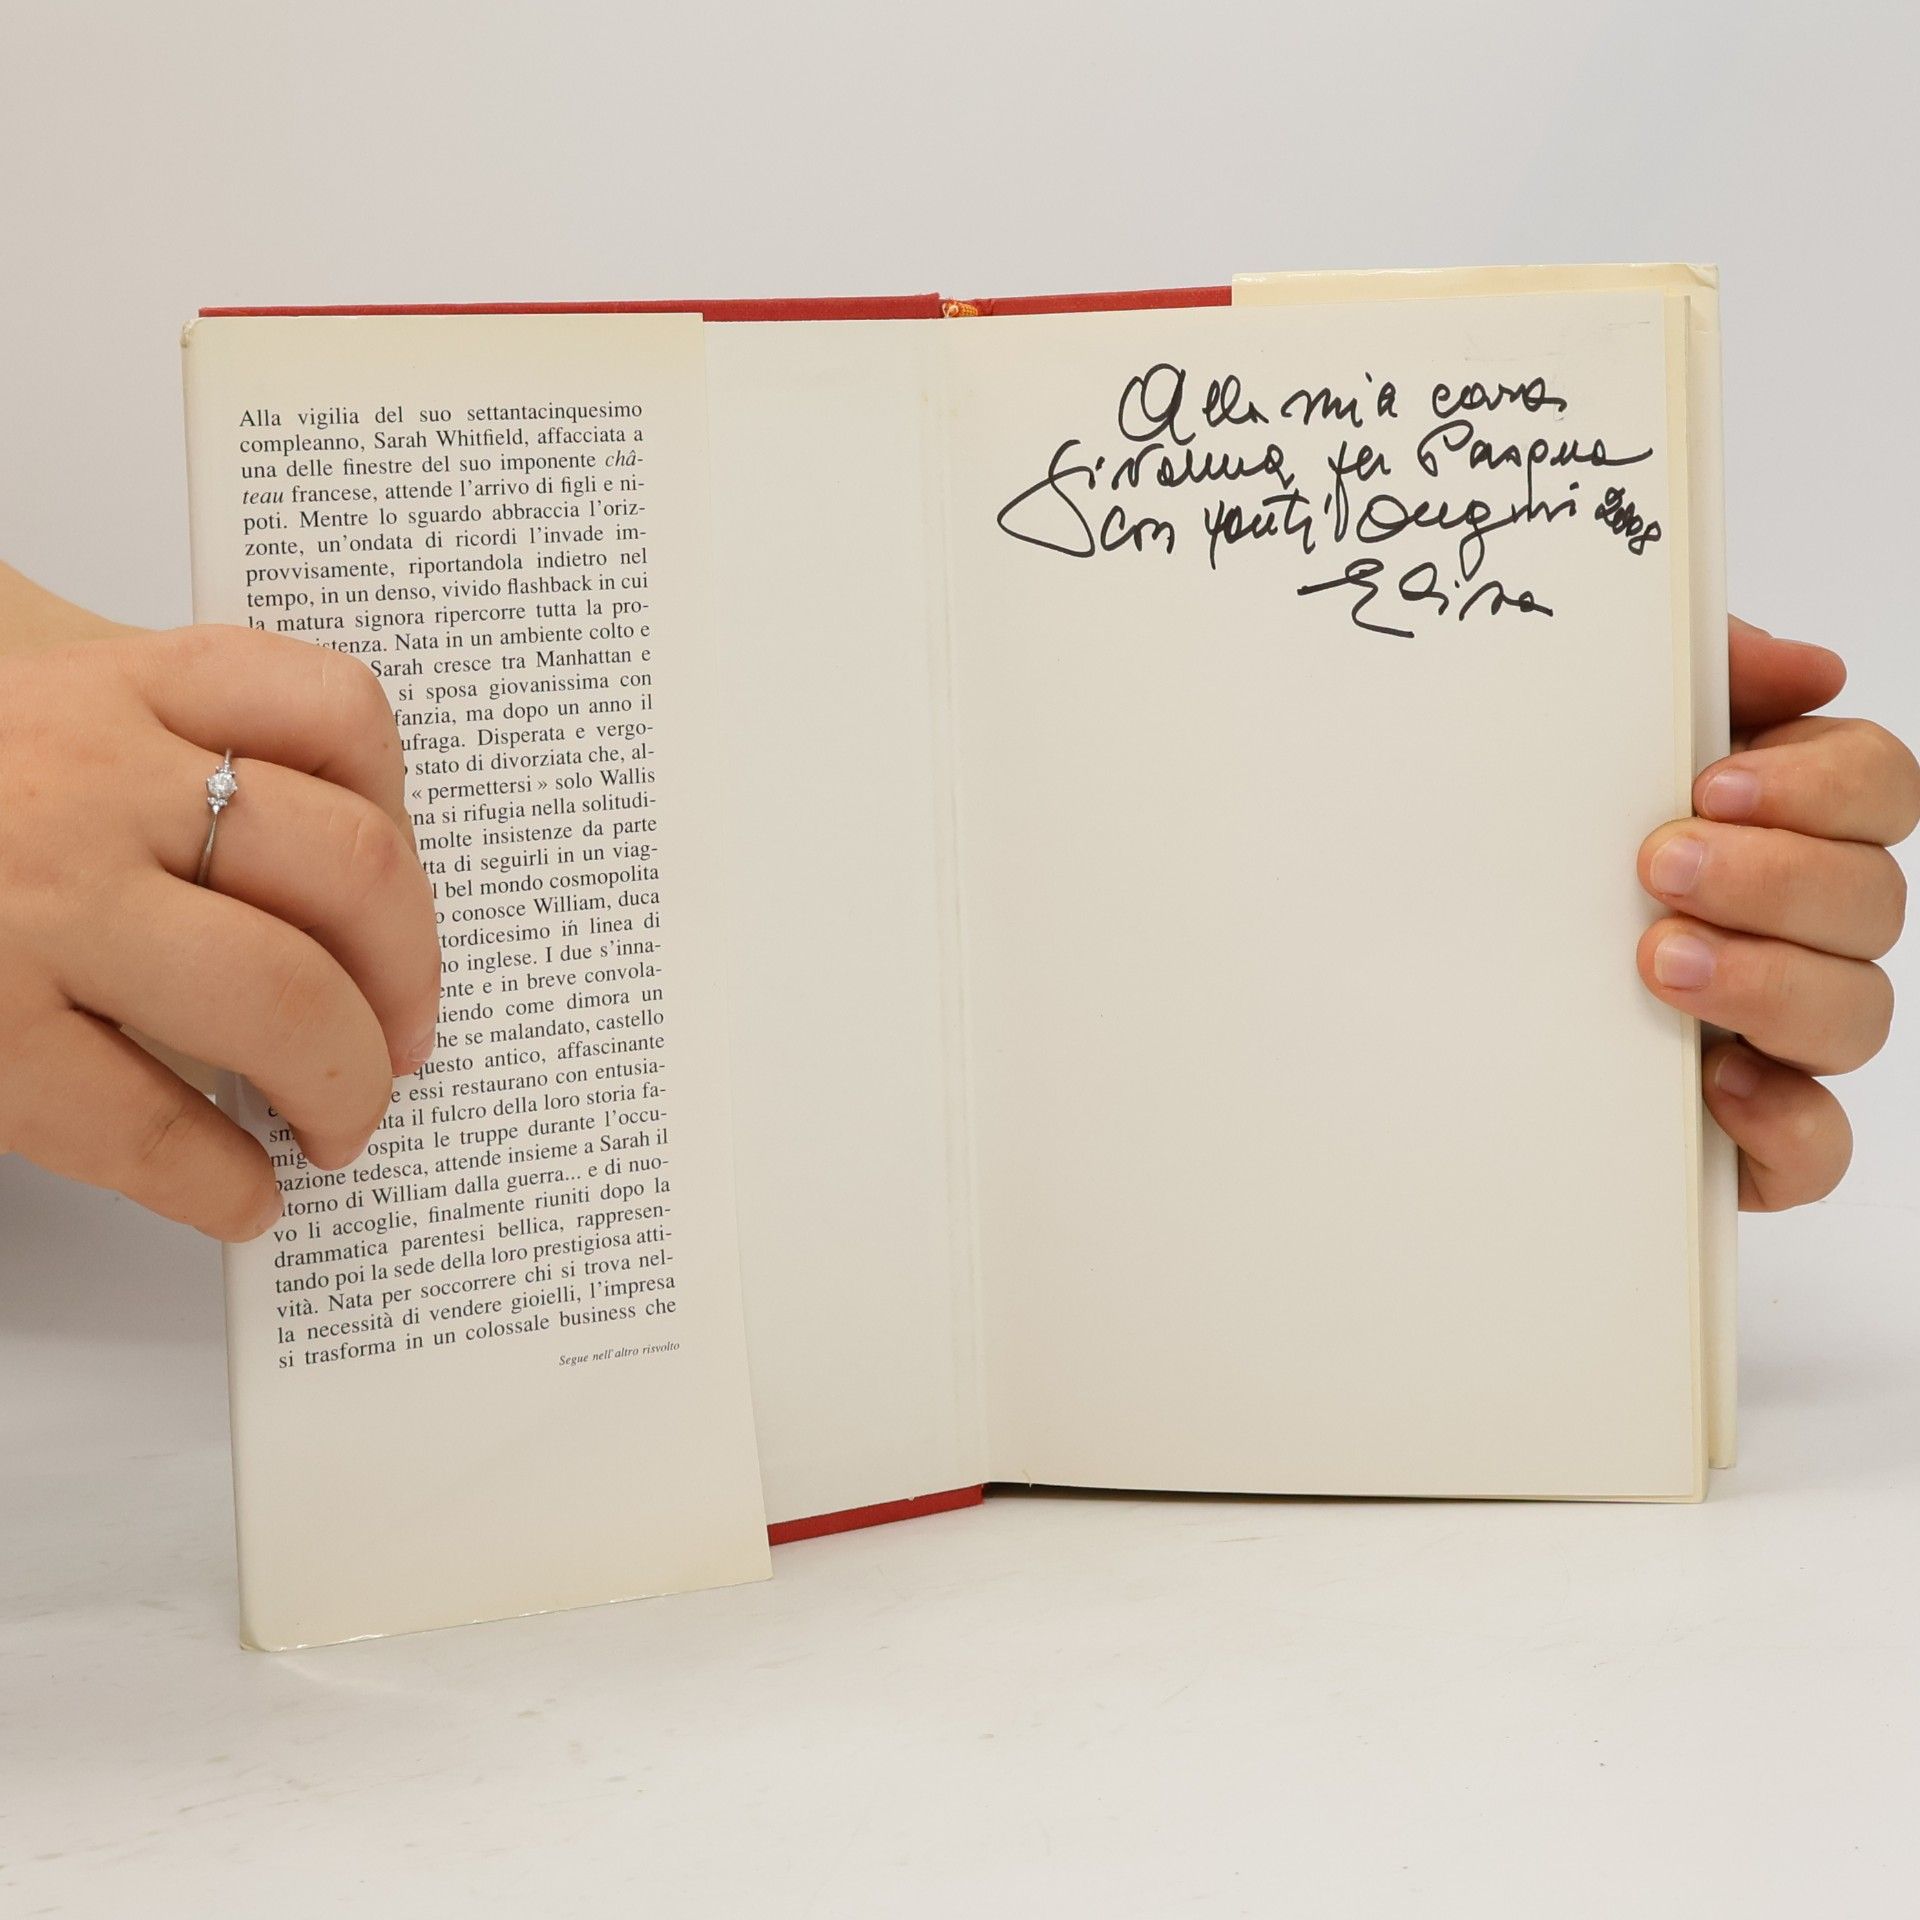 Alla vigilia del suo settantacinquesimo
compleanno, Sarah Whitfield, affacciata a
una delle finestre del suo imponente châ-
teau francese, attende l'arrivo di figli e ni-
poti. Mentre lo sguardo abbraccia l'oriz-
zonte, un'ondata di ricordi l'invade im-
provvisamente, riportandola indietro nel
tempo, in un denso, vivido flashback in cui
la matura signora ripercorre tutta la pro-
istenza. Nata in un ambiente colto e
Sarah cresce tra Manhattan e
si sposa giovanissima con
fanzia, ma dopo un anno il
ufraga. Disperata e vergo-
stato di divorziata che, al-
« permettersi » solo Wallis
na si rifugia nella solitudi-
molte insistenze da parte
tta di seguirli in un viag-
l bel mondo cosmopolita
o conosce William, duca
tordicesimo in linea di
no inglese. I due s'inna-
ente e in breve convola-
liendo come dimora un
he se malandato, castello
questo antico, affascinante
e essi restaurano con entusia-
sm nta il fulcro della loro storia fa-
mig ospita le truppe durante l'occu-
pazione tedesca, attende insieme a Sarah il
itorno di William dalla guerra... e di nuo-
vo li accoglie, finalmente riuniti dopo la
drammatica parentesi bellica, rappresen-
tando poi la sede della loro prestigiosa atti-
vità. Nata per soccorrere chi si trova nel-
la necessità di vendere gioielli, l'impresa
si trasforma in un colossale business che
Segue nell'altro risvolto
Alla mia cara
Giovanna per Pasqua
con tanti auguri 2008
Elisa